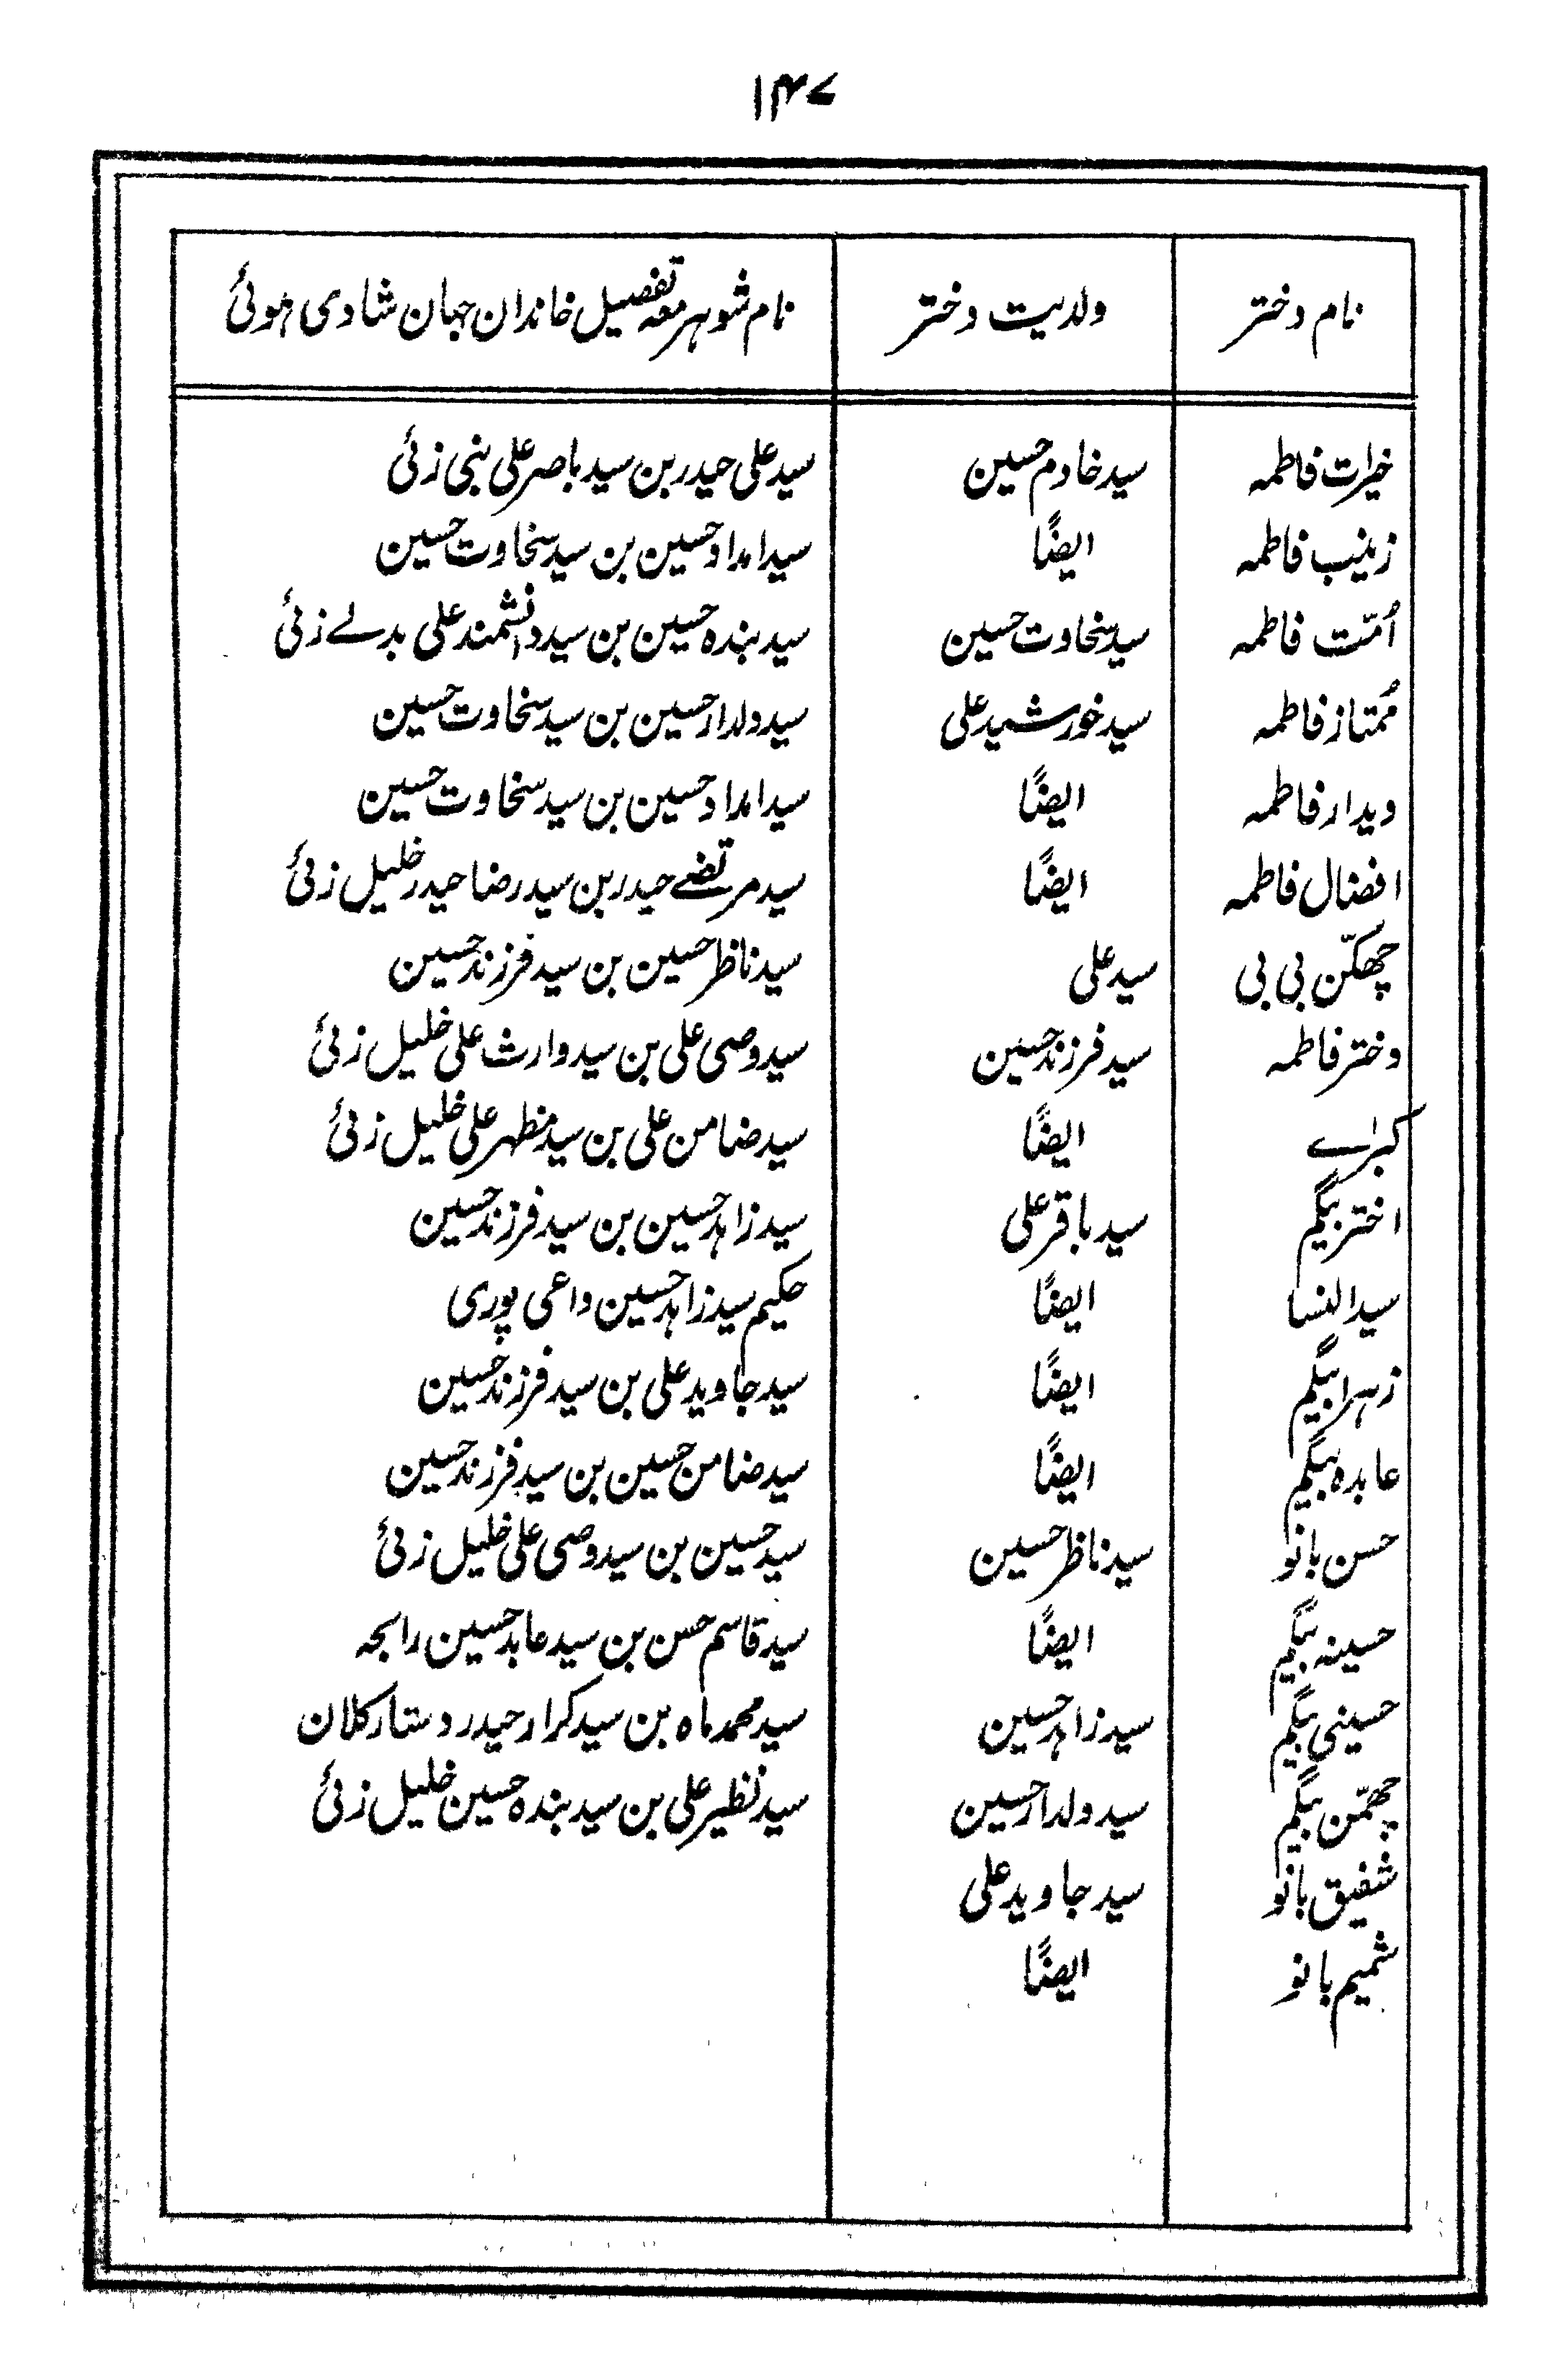 ۱۴۷
نام دختر ولدیت دختر نام شوہر معہ تفصیل خاندان جہان شادی ہوئی
خیرات فاطمہ سید خادم حسین سید علی حیدر بن سید باصر علی بنی زئی
زینب فاطمہ ایضًا سید امداد حسین بن سید سخاوت حسین
اُمّت فاطمہ سید سخاوت حسین سید بندہ حسین بن سید دانشمند علی بدلے زئی
مُمتاز فاطمہ سید خورشید علی سید دلدار حسین بن سید سخاوت حسین
دیدار فاطمہ ایضًا سید امداد حسین بن سید سخاوت حسین
افضال فاطمہ ایضًا سید مرتضےٰ حیدر بن سید رضا حیدر خلیل زئی
چھکّن بی بی سید علی سید ناظر حسین بن سید فرزند حسین
دختر فاطمہ سید فرزند حسین سید وصی علی بن سید وارث علی خلیل زئی
کبراے ایضًا سید ضامن علی بن سید مظہر علی خلیل زئی
اختر بیگم سید باقر علی سید زاہد حسین بن سید فرزند حسین
سید النسا ایضًا حکیم سید زاہد حسین داعی پوری
زہرا بیگم ایضًا سید جاوید علی بن سید فرزند حسین
عابدہ بیگم ایضًا سید ضامن حسین بن سید فرزند حسین
حسن بانو سید ناظر حسین سید حسین بن سید وصی علی خلیل زئی
حسینہ بیگم ایضًا سید قاسم حسن بن سید عابد حسین راجہ
حسینی بیگم سید زاہد حسین سید محمد ماہ بن سید کرار حیدر دستار کلان
چھمّن بیگم سید دلدار حسین سید نظیر علی بن سید بندہ حسین خلیل زئی
شفیق بانو سید جاوید علی
شمیم بانو ایضًا